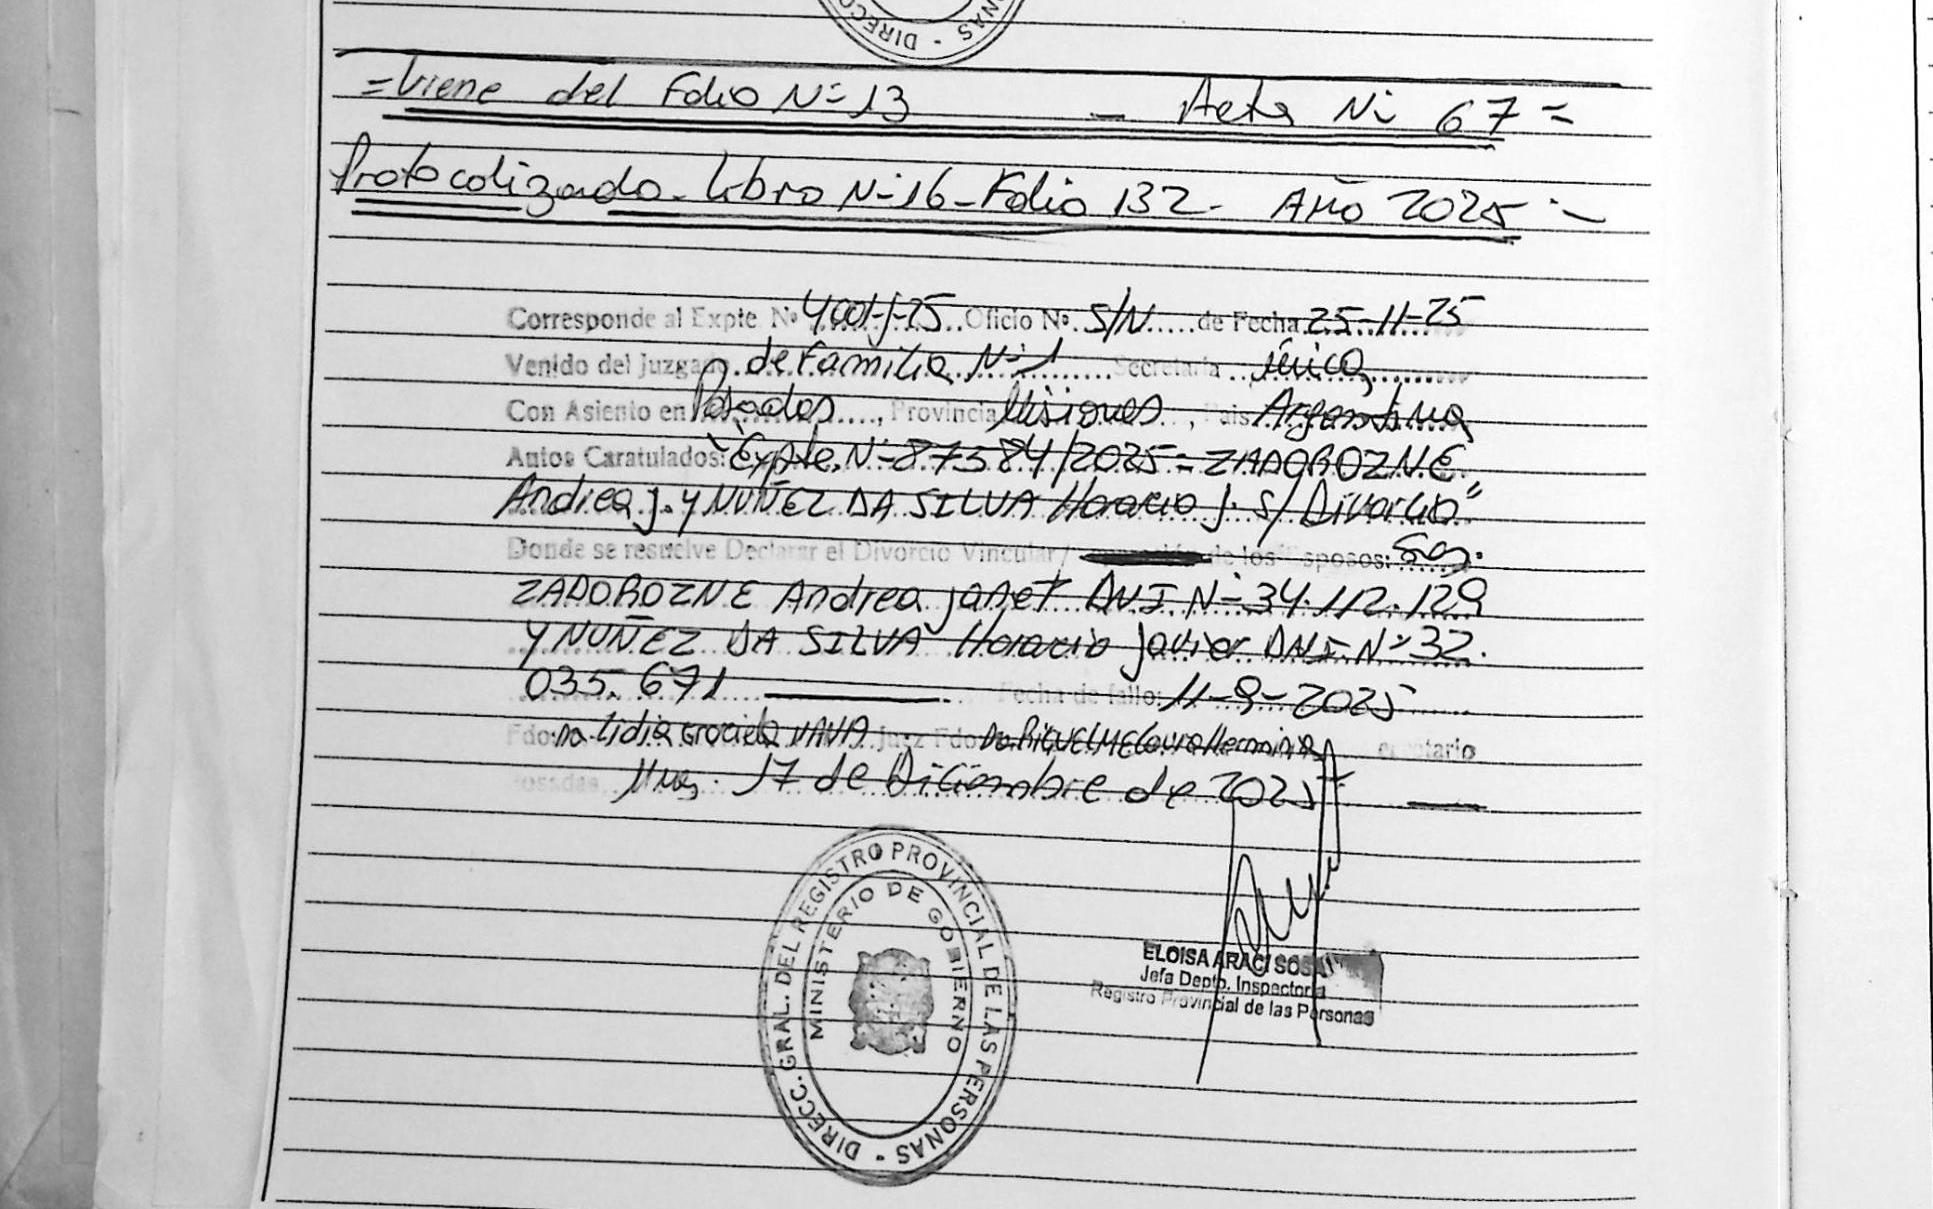 DIRECC
NAS - DIREC
= Viene del Folio Nº 13 - Acta Nº 67 =
Protocolizado - Libro Nº 16 - Folio 132 - Año 2025 -
Corresponde al Expte Nº 4001-J-25 Oficio Nº S/N de Fecha 25-11-25
Venido del Juzgado de Familia Nº 1 Secretaria única
Con Asiento en Posadas, Provincia Misiones, Pais Argentina
Autos Caratulados: "Expte. Nº 87384/2025 = ZADOROZNE
Andrea J. y NUÑEZ DA SILVA Horacio J. S/ Divorcio"
Donde se resuelve Declarar el Divorcio Vincular / de los Esposos: Sres.
ZADOROZNE Andrea Janet DNI Nº 34.112.129
Y NUÑEZ DA SILVA Horacio Javier DNI Nº 32.
035.671 Fecha de fallo: 11-9-2025
Fdo: Dra. Lidia Graciela Juez Fdo Dra. RIQUELME Laura Herminia Secretario
Posadas, Mnes. 17 de Diciembre de 2025
DIRECC. GRAL. DEL REGISTRO PROVINCIAL DE LAS PERSONAS
MINISTERIO DE GOBIERNO
ELOISA ARACI SOSA
Jefa Depto. Inspectoria
Registro Provincial de las Personas